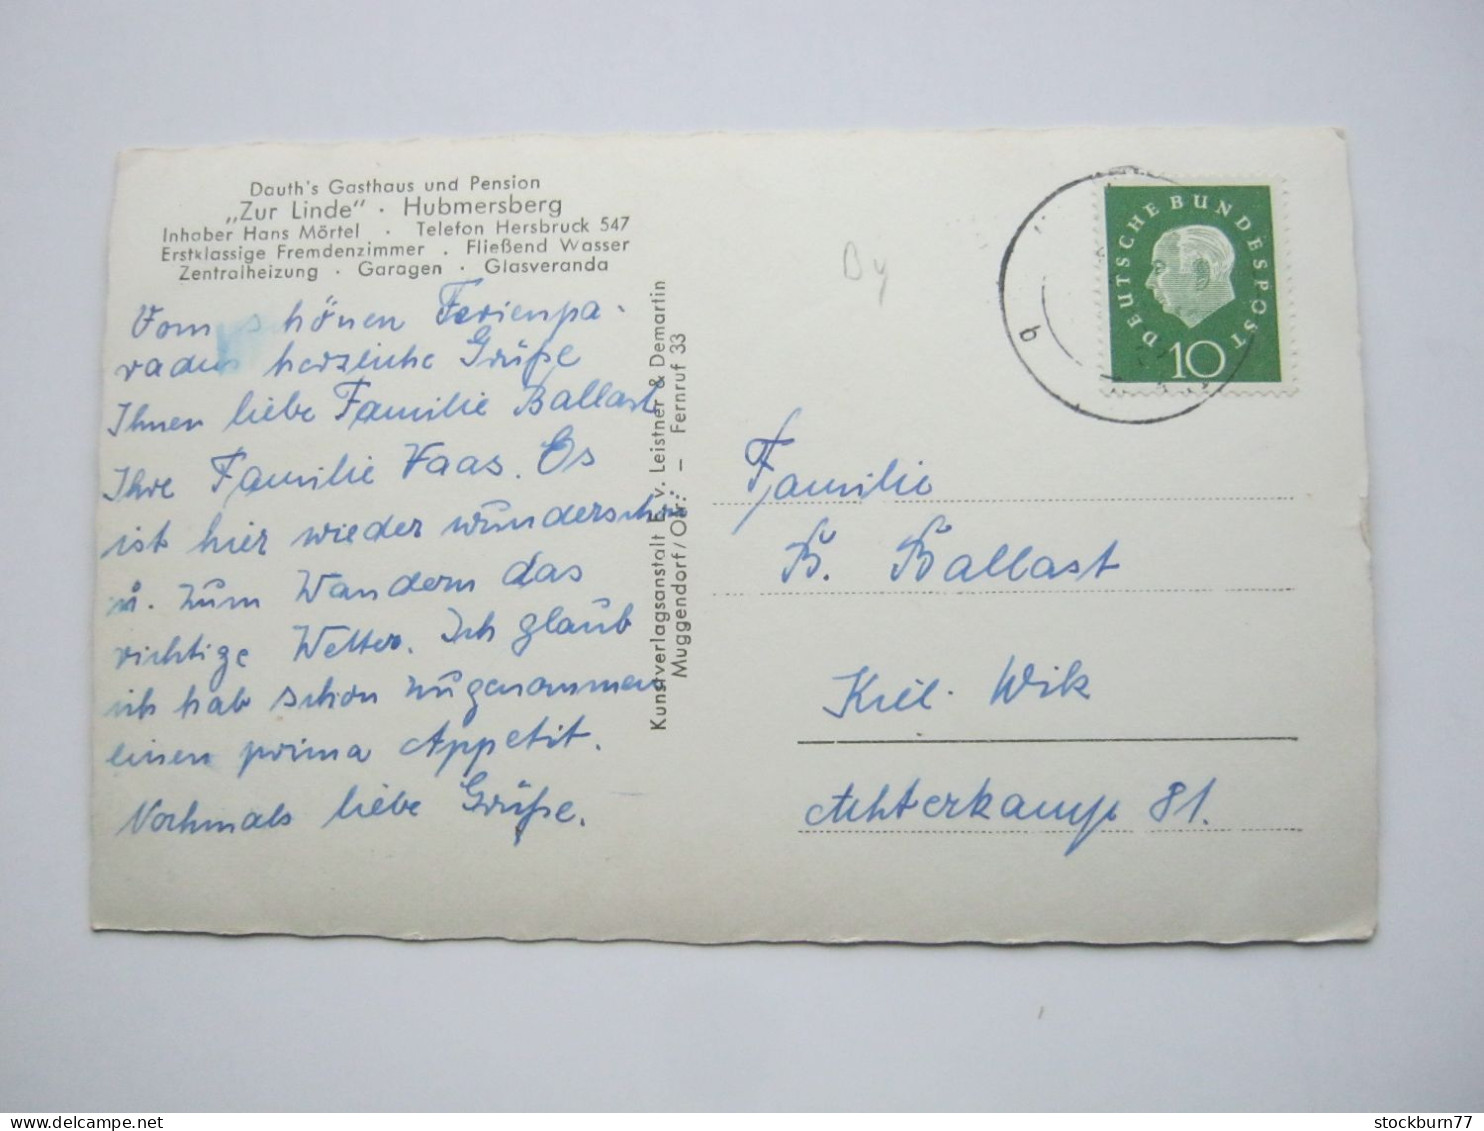 Dauth's Gasthaus und Pension
„Zur Linde" · Hubmersberg
Inhaber Hans Mörtel · Telefon Hersbruck 547
Erstklassige Fremdenzimmer · Fließend Wasser
Zentralheizung · Garagen · Glasveranda
Vom schönen Ferienpa-
radies herzliche Grüße
Ihnen liebe Familie Ballast
Ihre Familie Vaas. Es
ist hier wieder wunderschön
u. zum Wandern das
richtige Wetter. Ich glaub
ich hab schon zugenommen
einen prima Appetit.
Nochmals liebe Grüße.
Kunstverlagsanstalt E. v. Leistner & Demartin
Muggendorf/Ofr. – Fernruf 33
By
b
DEUTSCHE BUNDESPOST
10
Familie
B. Ballast
Kiel-Wik
Achterkamp 81.
stockburn77